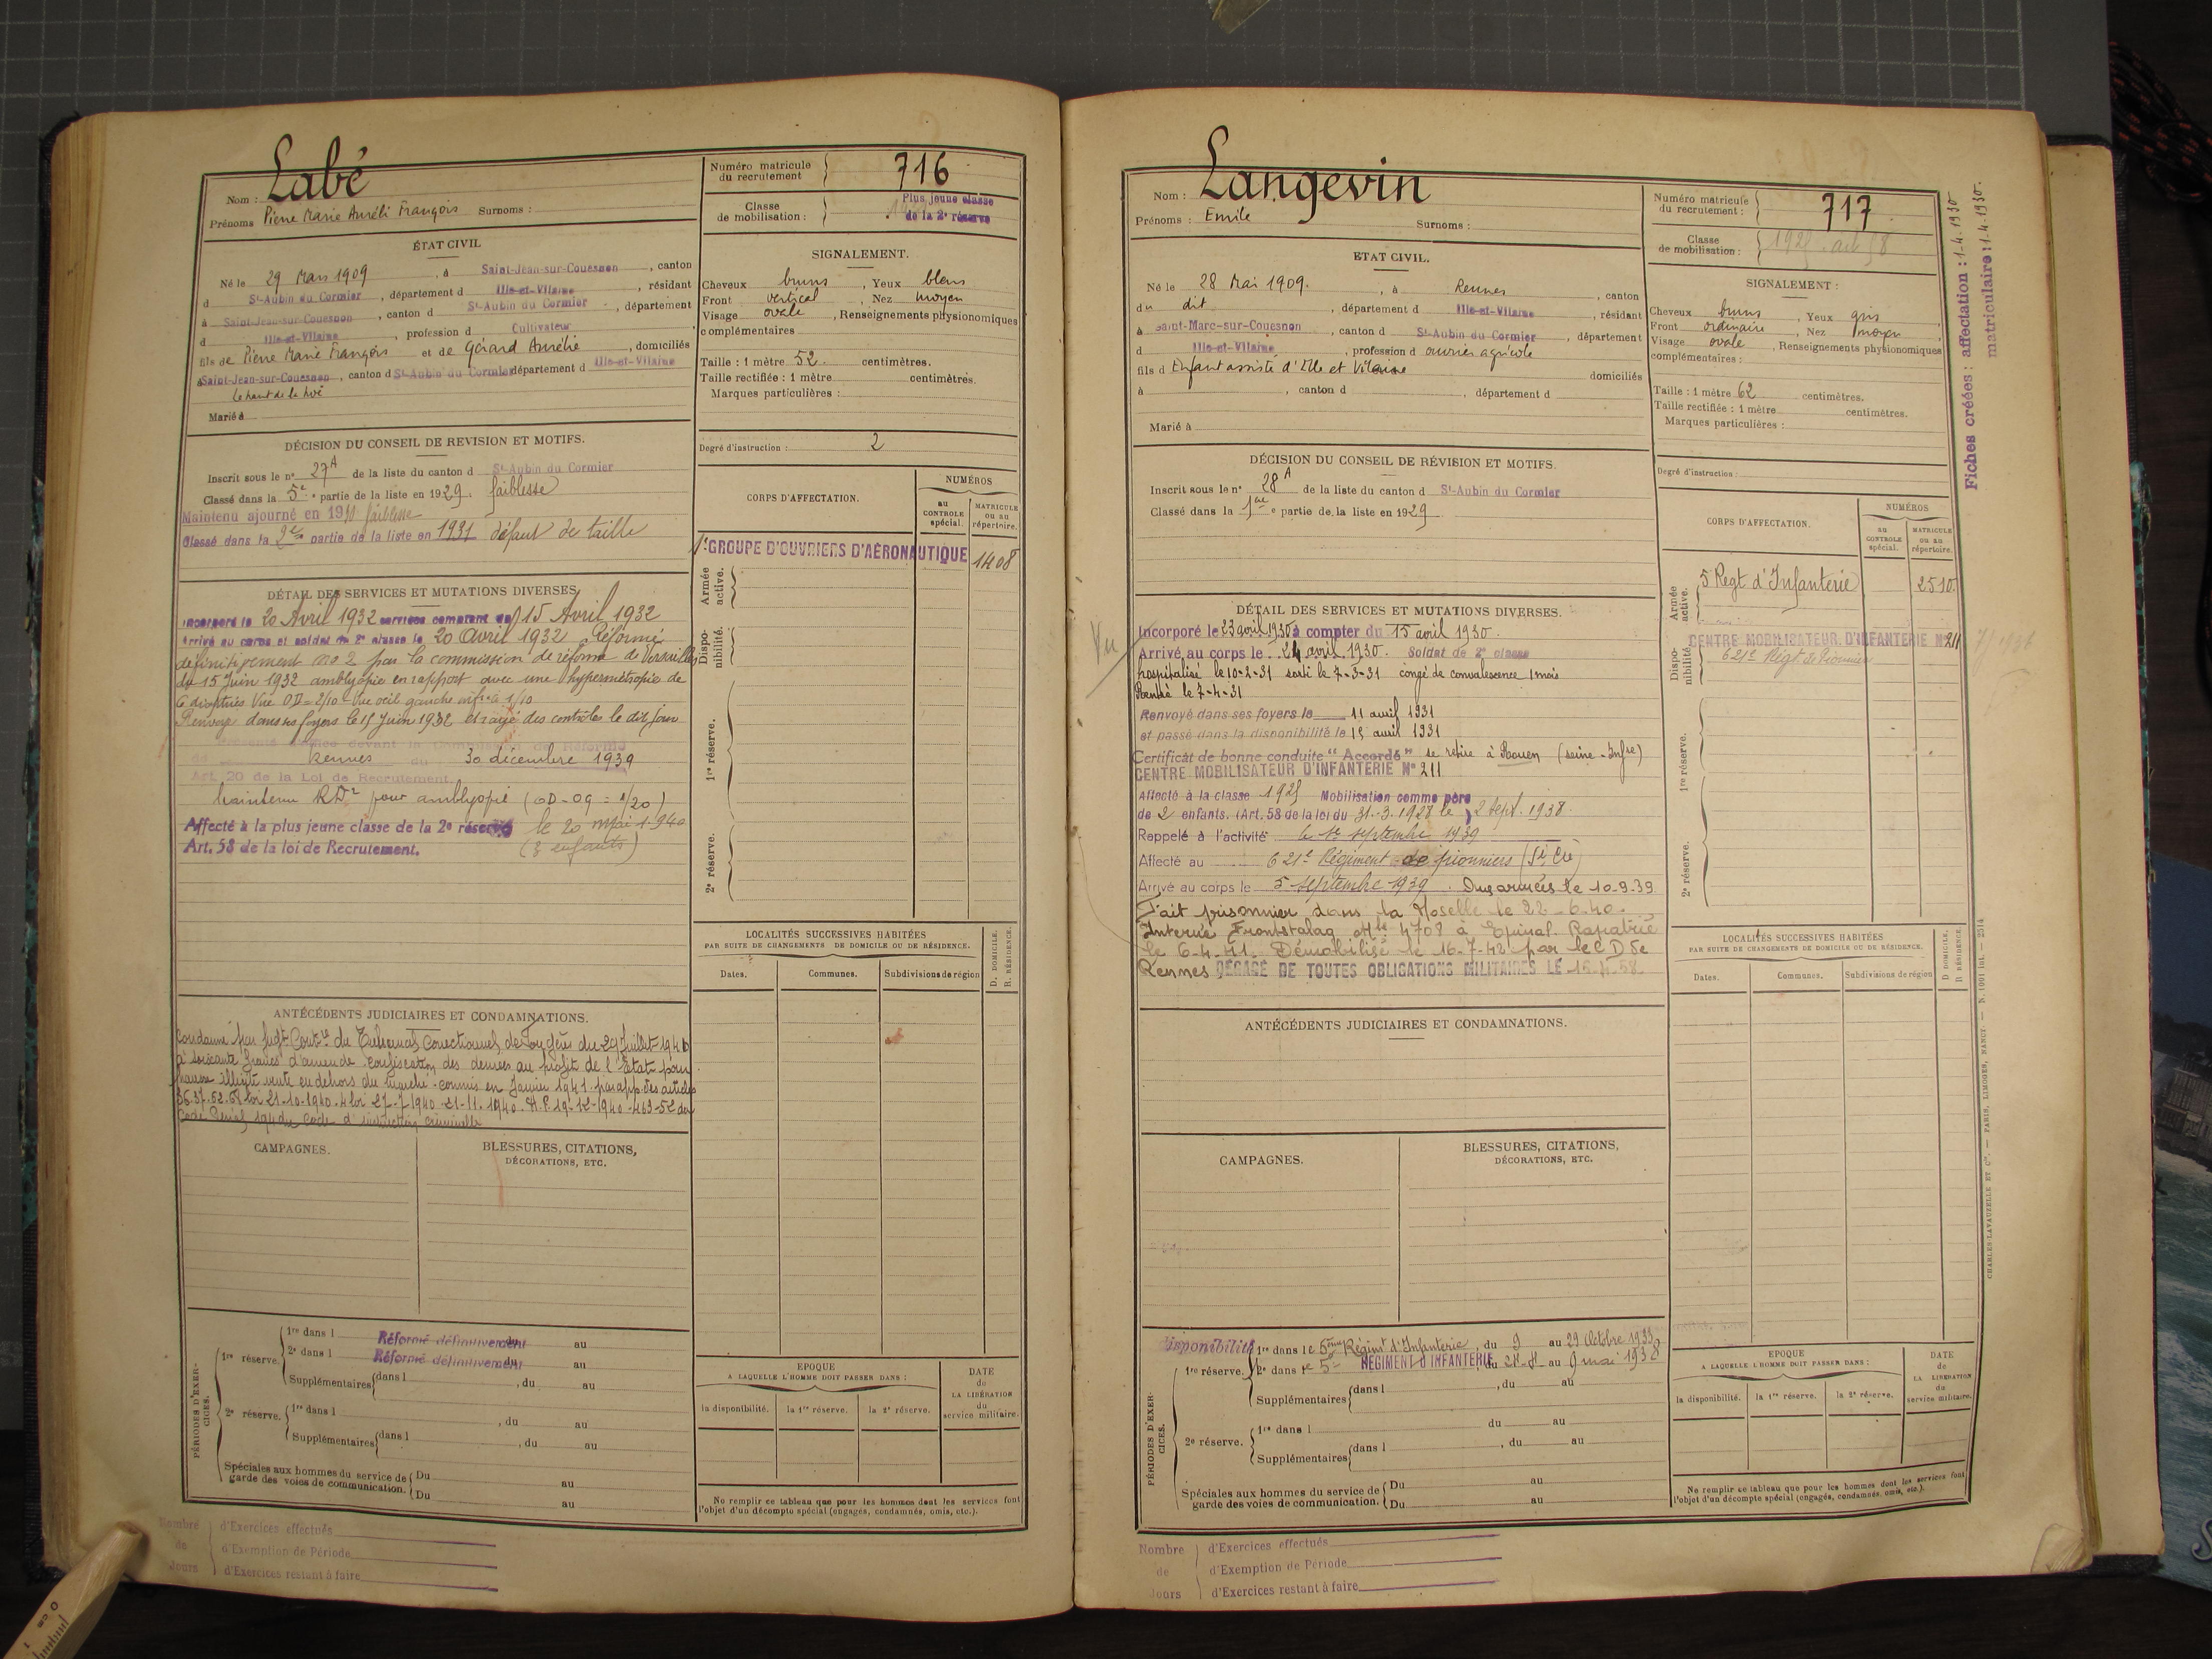 Labé
Nom :
Prénoms Pierre Marie Auréli François Surnoms :
Numéro matricule du recrutement 716
Classe de mobilisation : Plus jeune classe de la 2e réserve
ÉTAT CIVIL
Né le 29 Mars 1909, à Saint-Jean-sur-Couesnon, canton
d St-Aubin du Cormier, département d Ille-et-Vilaine, résidant
à Saint-Jean-sur-Couesnon, canton d St-Aubin du Cormier, département
d Ille-et-Vilaine, profession d Cultivateur
fils de Pierre Marie François et de Gérard Aurélie, domiciliés
à Saint-Jean-sur-Couesnon, canton d St-Aubin du Cormier département d Ille-et-Vilaine
Le haut de la
Marié à
SIGNALEMENT.
Cheveux bruns, Yeux bleus
Front vertical, Nez moyen
Visage ovale, Renseignements physionomiques
complémentaires
Taille : 1 mètre 52 centimètres.
Taille rectifiée : 1 mètre centimètres.
Marques particulières :
Degré d'instruction : 2
DÉCISION DU CONSEIL DE REVISION ET MOTIFS.
Inscrit sous le n° 27A de la liste du canton d St-Aubin du Cormier
Classé dans la 5e partie de la liste en 1929. faiblesse
Maintenu ajourné en 1930 faiblesse
Classé dans la 2e partie de la liste en 1931 défaut de taille
CORPS D'AFFECTATION.
NUMÉROS
au CONTROLE spécial.
MATRICULE ou au répertoire.
1er GROUPE D'OUVRIERS D'AÉRONAUTIQUE 1408
Armée active.
Disponibilité.
1re réserve.
2e réserve.
DÉTAIL DES SERVICES ET MUTATIONS DIVERSES
Incorporé le 20 Avril 1932 services comptant du 15 Avril 1932
Arrivé au corps et soldat de 2e classe le 20 avril 1932 Réformé
définitivement no 2 par la commission de réforme de Versailles
du 15 Juin 1932 amblyopie en rapport avec une hypermétropie de
6 dioptries Vue OD = 2/10 Vue oeil gauche infre à 1/10
Renvoyé dans ses foyers le 15 Juin 1932 et rayé des contrôles le dit jour
devant la Commission de Réforme
de Rennes du 30 décembre 1939
Art. 20 de la Loi de Recrutement.
Maintenu RD2 pour amblyopie (OD-OG = 1/20)
Affecté à la plus jeune classe de la 2e réserve le 20 mai 1940
Art. 58 de la loi de Recrutement. (3 enfants)
LOCALITÉS SUCCESSIVES HABITÉES
PAR SUITE DE CHANGEMENTS DE DOMICILE OU DE RÉSIDENCE.
Dates. Communes. Subdivisions de région
D. DOMICILE. R. RÉSIDENCE.
ANTÉCÉDENTS JUDICIAIRES ET CONDAMNATIONS.
Condamné par Jugt Contre du Tribunal Correctionnel de Fougères du 29 Juillet 1941
à soixante francs d'amende confiscation des denrées au profit de l'Etat pour
hausse illicite vente en dehors du marché commis en Janvier 1941 par app. des articles
36.37.52.58 loi 21-10-1940. 4 loi 27-7-1940 21-11-1940. A.P. 19-12-1940-463-52 du
Code Pénal, 194 du Code d'instruction criminelle
CAMPAGNES.
BLESSURES, CITATIONS, DÉCORATIONS, ETC.
PÉRIODES D'EXERCICES.
1re réserve. 1re dans l Réformé définitivement du au
2e dans l Réformé définitivement du au
Supplémentaires dans l , du au
2e réserve. 1re dans l , du au
Supplémentaires dans l , du au
Spéciales aux hommes du service de garde des voies de communication. Du au
Du au
EPOQUE
A LAQUELLE L'HOMME DOIT PASSER DANS :
la disponibilité. la 1re réserve. la 2e réserve.
DATE de LA LIBÉRATION du service militaire.
Ne remplir ce tableau que pour les hommes dont les services font
l'objet d'un décompte spécial (engagés, condamnés, omis, etc.).
Nombre de Jours
d'Exercices effectués
d'Exemption de Période
d'Exercices restant à faire
Langevin
Nom :
Prénoms : Emile Surnoms :
Numéro matricule du recrutement : 717
Classe de mobilisation : 1925 art 58
Fiches créées : affectation : 1-4-1930
matriculaire : 1-4-1930.
ETAT CIVIL.
Né le 28 Mai 1909, à Rennes, canton
du dit, département d Ille-et-Vilaine, résidant
à Saint-Marc-sur-Couesnon, canton d St-Aubin du Cormier, département
d Ille-et-Vilaine, profession d ouvrier agricole
fils d Enfant assisté d'Ille et Vilaine domiciliés
à , canton d , département d
Marié à
SIGNALEMENT :
Cheveux bruns, Yeux gris
Front ordinaire, Nez moyen
Visage ovale, Renseignements physionomiques
complémentaires :
Taille : 1 mètre 62 centimètres.
Taille rectifiée : 1 mètre centimètres.
Marques particulières :
Degré d'instruction :
DÉCISION DU CONSEIL DE RÉVISION ET MOTIFS.
Inscrit sous le n° 28A de la liste du canton d St-Aubin du Cormier
Classé dans la 1ère partie de la liste en 1929
CORPS D'AFFECTATION.
NUMÉROS
au CONTROLE spécial.
MATRICULE ou au répertoire.
Armée active. 5 Regt d'Infanterie 2510
CENTRE MOBILISATEUR D'INFANTERIE N° 211
Disponibilité. 621e Régt de Pionniers
1re réserve.
2e réserve.
DÉTAIL DES SERVICES ET MUTATIONS DIVERSES.
Vu
Incorporé le 23 avril 1930 à compter du 15 avril 1930.
Arrivé au corps le 24 avril 1930. Soldat de 2e classe
hospitalisé le 10-2-31 sorti le 7-3-31 congé de convalescence 1 mois
Rentré le 7-4-31
Renvoyé dans ses foyers le 11 avril 1931
et passé dans la disponibilité le 15 avril 1931
Certificat de bonne conduite "Accordé" se retire à Rouen (Seine-Infre)
CENTRE MOBILISATEUR D'INFANTERIE N° 211
Affecté à la classe 1925 Mobilisation comme père
de 2 enfants. (Art. 58 de la loi du 31-3-1928 le 2 Sept. 1938
Rappelé à l'activité le 1er septembre 1939
Affecté au 621e Régiment de pionniers
Arrivé au corps le 5 septembre 1939. Aux armées le 10-9-39
Fait prisonnier dans la Moselle le 22-6-40.
Interné Frontstalag Mle 4708 à Epinal. Rapatrié
le 6-4-41. Démobilisé le 16-7-42 par le C D de
Rennes DÉGAGÉ DE TOUTES OBLIGATIONS MILITAIRES LE 15-4-58
LOCALITÉS SUCCESSIVES HABITÉES
PAR SUITE DE CHANGEMENTS DE DOMICILE OU DE RÉSIDENCE.
Dates. Communes. Subdivisions de région
D. DOMICILE. R. RÉSIDENCE.
ANTÉCÉDENTS JUDICIAIRES ET CONDAMNATIONS.
CAMPAGNES.
BLESSURES, CITATIONS, DÉCORATIONS, ETC.
PÉRIODES D'EXERCICES.
Disponibilité 1re dans le 5ème Régimt d'Infanterie, du 9 au 29 Octobre 1933
1re réserve. 2e dans le 5e RÉGIMENT D'INFANTERIE du au 9 mai 1938
Supplémentaires dans l , du au
2e réserve. 1re dans l du au
Supplémentaires dans l , du au
Spéciales aux hommes du service de garde des voies de communication. Du au
Du au
EPOQUE
A LAQUELLE L'HOMME DOIT PASSER DANS :
la disponibilité. la 1re réserve. la 2e réserve.
DATE de LA LIBÉRATION du service militaire.
Ne remplir ce tableau que pour les hommes dont les services font
l'objet d'un décompte spécial (engagés, condamnés, omis, etc.).
CHARLES-LAVAUZELLE ET Cie. — PARIS, LIMOGES, NANCY — N. 1001 int. — 2514
Nombre de Jours
d'Exercices effectués
d'Exemption de Période
d'Exercices restant à faire
0 cm 1